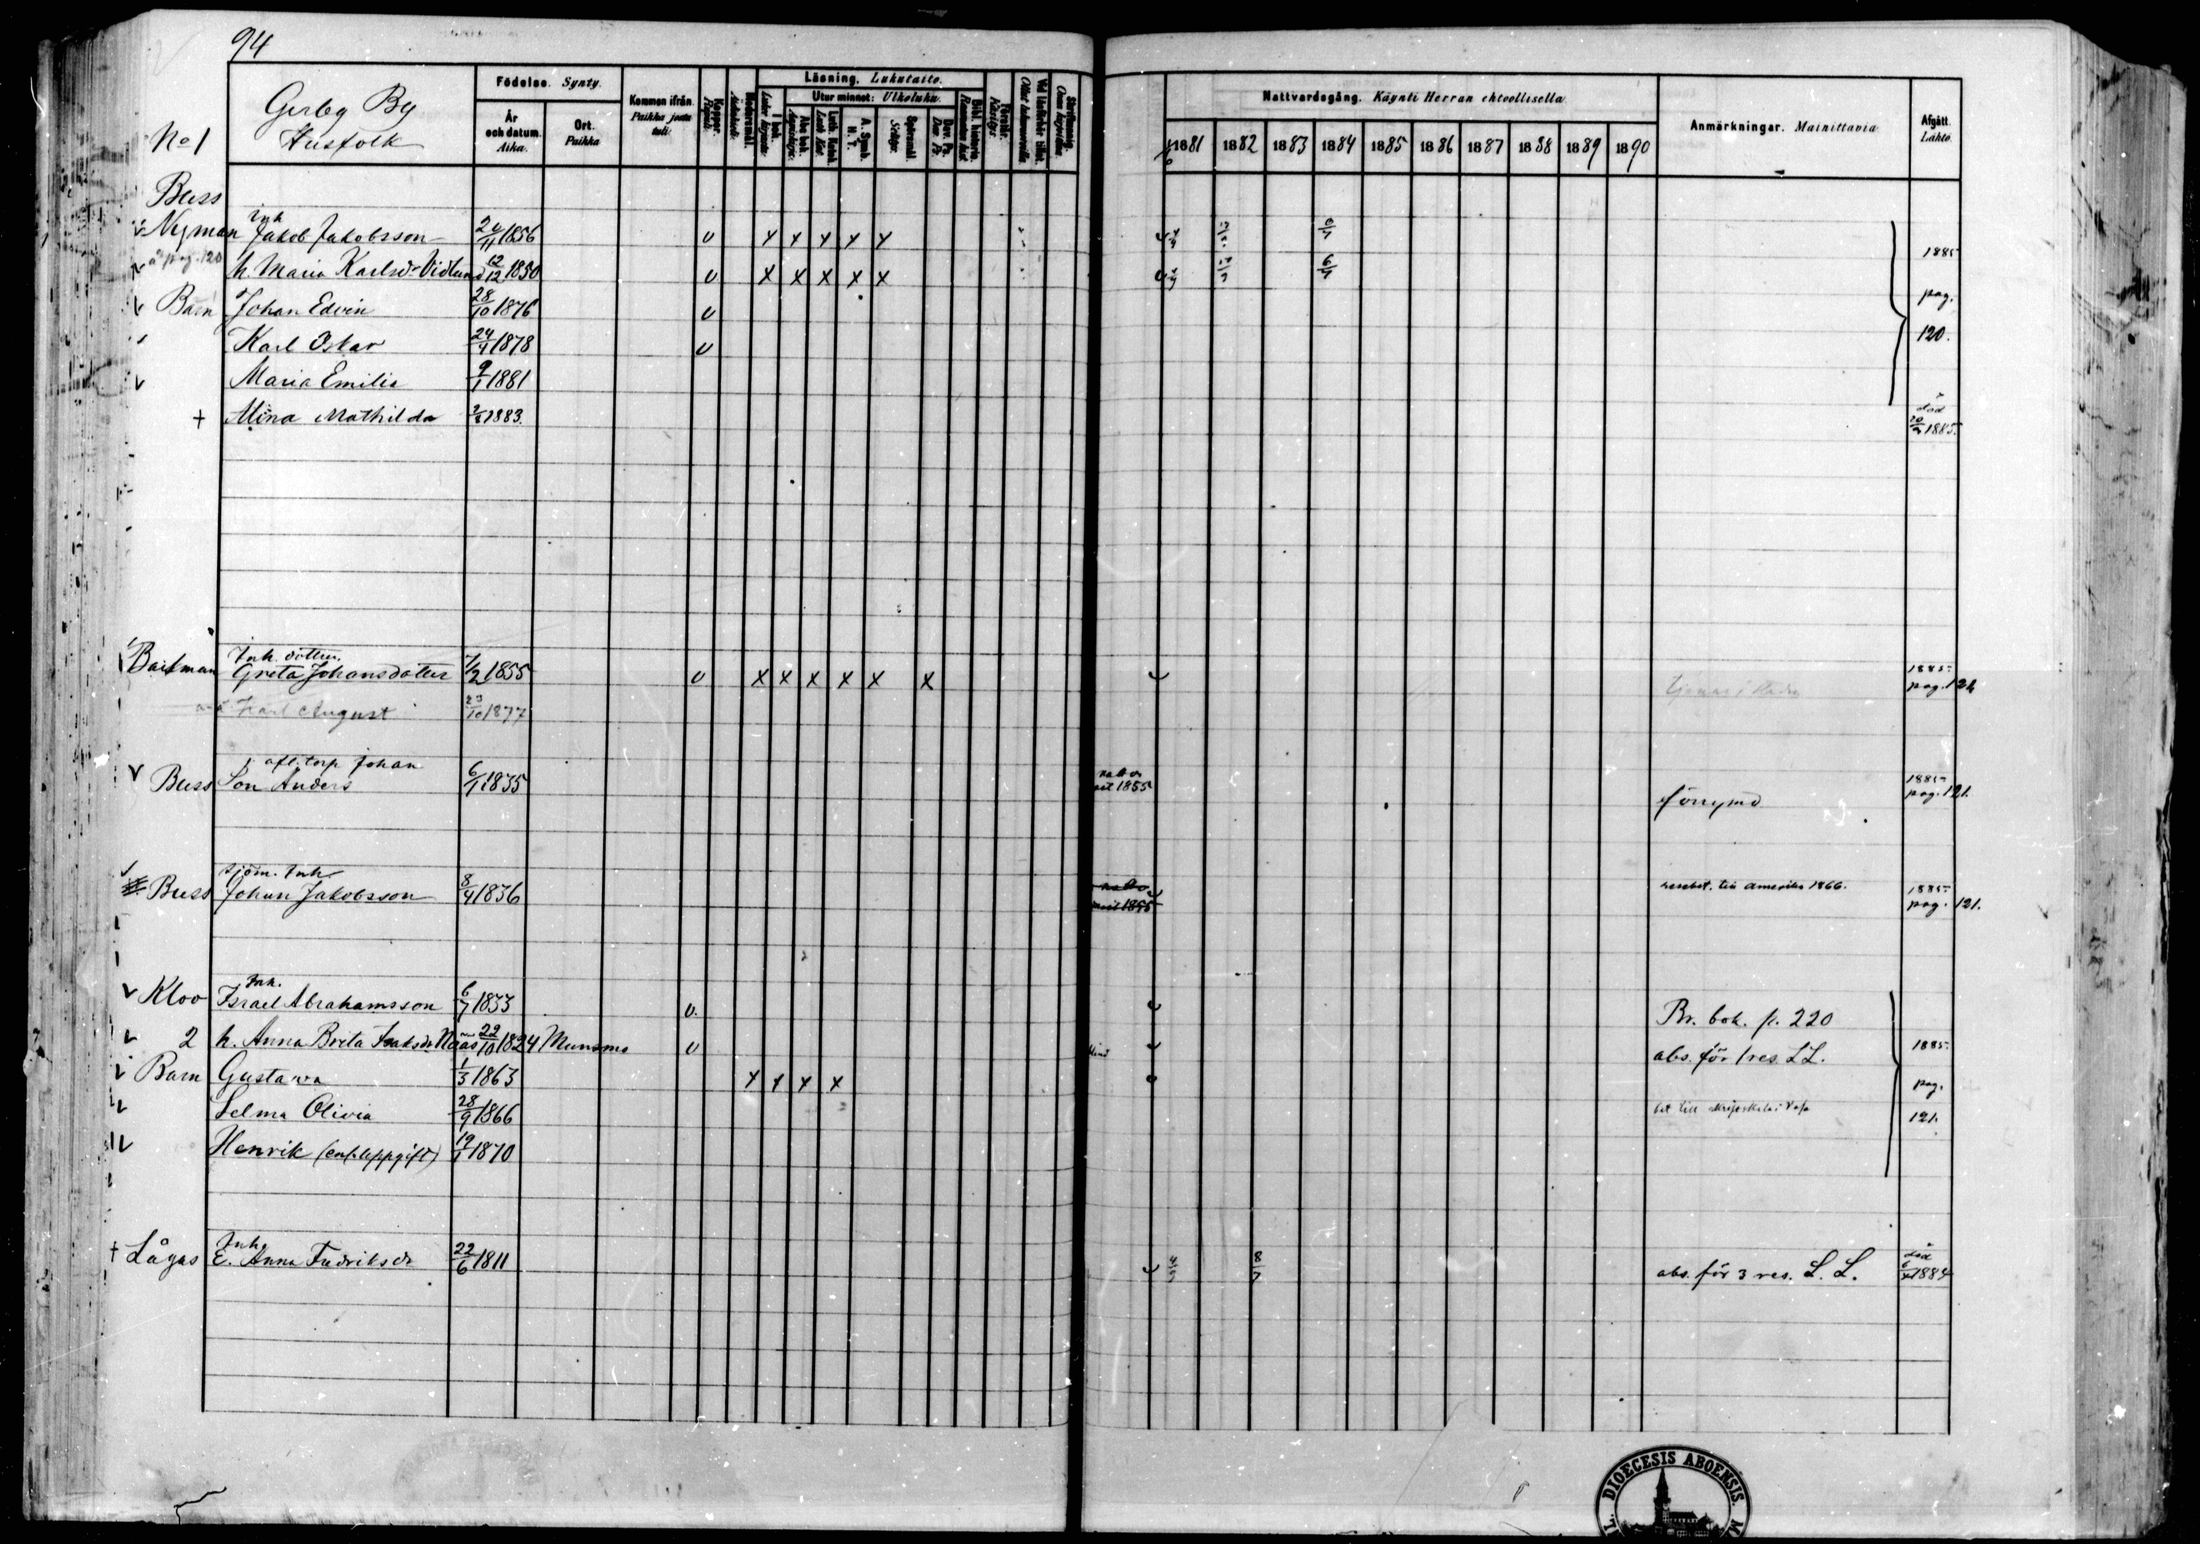 94
Gerby By
Husfolk
No 1
Födelse. Synty.
År och datum. Aika.
Ort. Paikka
Kommen ifrån. Paikka josta tuli.
Koppor. Rupuli.
Läsning. Lukutaito.
I bok.
Utur minnet: Ulkoluku.
Aba bok.
Luth. Katek.
A. Symb.
H. T.
Spörsmål. Selitys.
Dav. Ps. Dav. Ps.
Bibl. historia.
Förstår. Käsitys.
Nattvardsgång. Käynti Herran ehtoollisella.
1881 1882 1883 1884 1885 1886 1887 1888 1889 1890
Anmärkningar. Mainittavia
Afgått. Lähtö.
Buss
Nyman Inh Jakob Jakobsson 20/11 1856
pag. 120 h. Maria Karlsd. Vidlund 12/12 1850 6/7
Barn Johan Edvin 28/10 1876
Karl Oskar 24/4 1878
Maria Emilia 9/1 1881
1885 pag. 120.
+ Mina Mathilda 1883. död 1885.
Inh. dotter.
Greta Johansdotter 1/2 1855 1885 pag. 121
Karl August 23/10 1877
afl. torp Johan
Buss Son Anders 6/1 1835 1855 förrymd 1885 pag. 121.
sjöm. Inh.
Buss Johan Jakobsson 8/4 1836 till Amerika 1866. 1885 pag. 121.
Inh.
Kloo Israel Abrahamsson 6/7 1833 Br. bok. p. 220
2 h. Anna Brita Isaksdr 22/10 1824 Munsmo abs. för 1 res. L L.
Barn Gustava 1/3 1863
Selma Olivia 28/9 1866
Henrik (enl. uppgift) 19/1 1870
1885. pag. 121.
Inh.
+ Lågas E. Anna Fredriksdr 22/6 1811 8/7 abs. för 3 res. L. L. död 1884
DIOECESIS ABOENSIS.